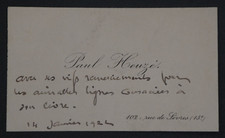 Paul Heuzé
avec ses vifs remerciements pour
les aimables lignes consacrées à
son livre.
14 Janvier 1924
102, rue de Sèvres (15e)